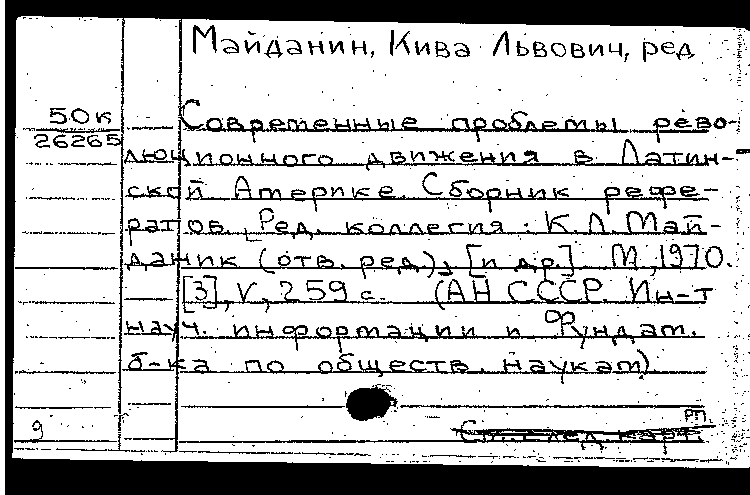 Майданин, Кива Львович, ред
50к
26265
Современные проблемы рево-
люционного движения в Латин-
ской Америке. Сборник рефе-
ратов. Ред. коллегия: К.Л. Май-
даник (отв. ред.), [и др.] М., 1970.
[3], V, 259 с. (АН СССР. Ин-т
науч. информации и Фундам.
б-ка по обществ. наукам)
РП.
См. след. карт.
9